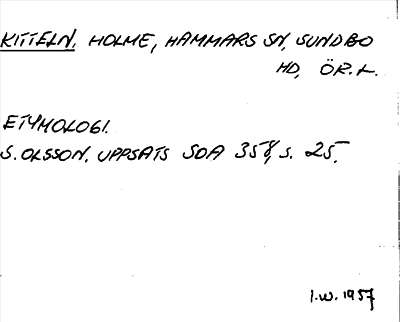 KITTELN, HOLME, HAMMARS SN, SUNDBO
HD, ÖR. L.
ETYMOLOGI.
S. OLSSON. UPPSATS SOA 358, S. 25.
I.W. 1957